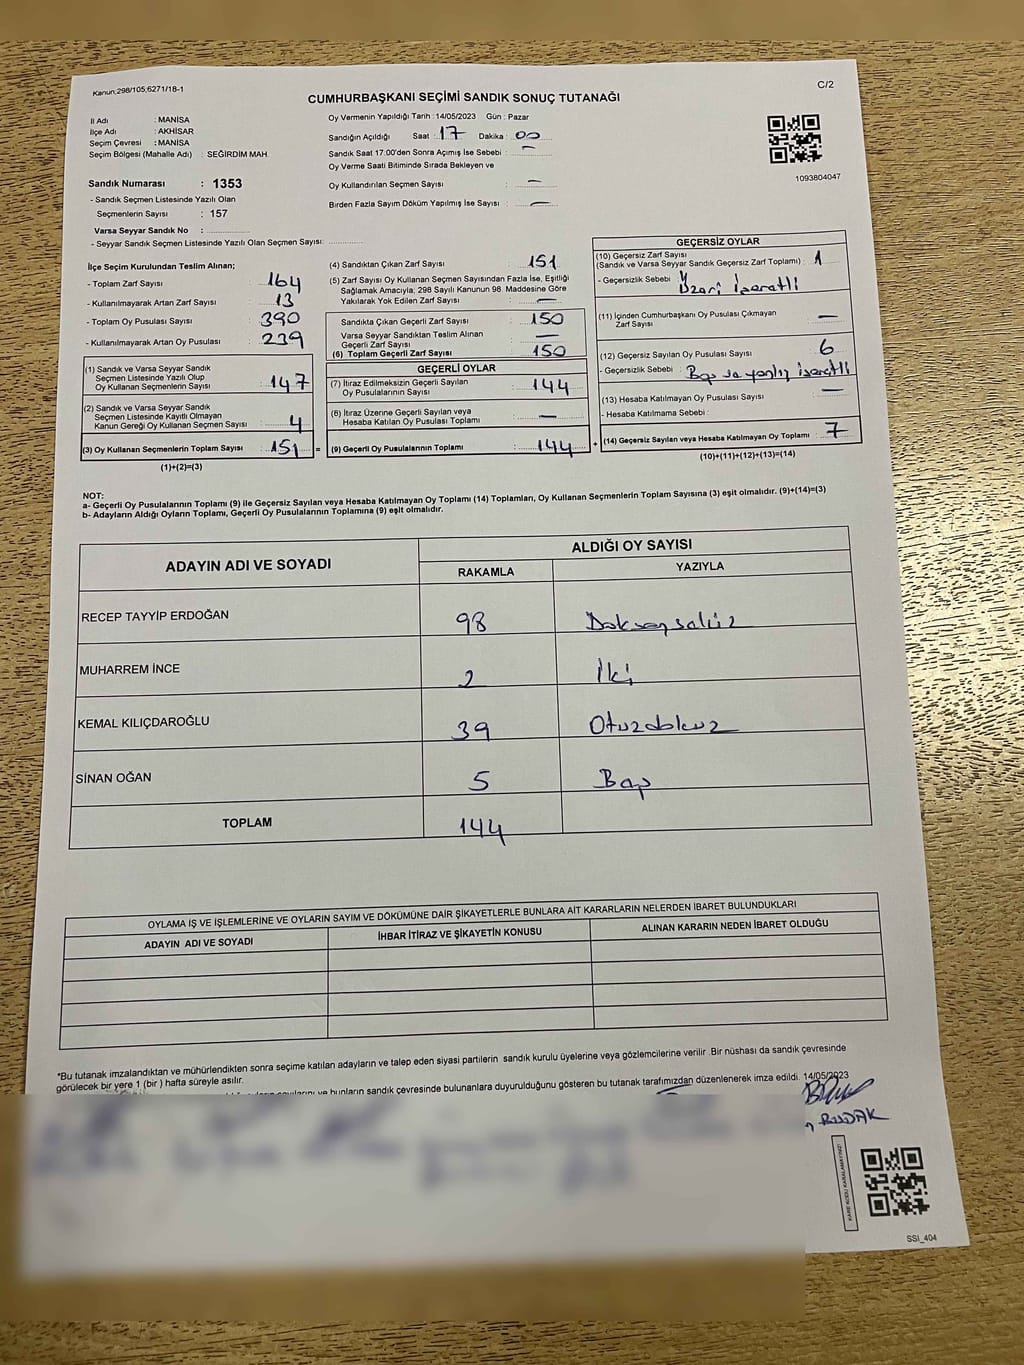 Kanun,298/105;6271/18-1
C/2
CUMHURBAŞKANI SEÇİMİ SANDIK SONUÇ TUTANAĞI
İl Adı : MANİSA
İlçe Adı : AKHİSAR
Seçim Çevresi : MANİSA
Seçim Bölgesi (Mahalle Adı) : SEĞİRDİM MAH.
Sandık Numarası : 1353
- Sandık Seçmen Listesinde Yazılı Olan
Seçmenlerin Sayısı : 157
Varsa Seyyar Sandık No :
- Seyyar Sandık Seçmen Listesinde Yazılı Olan Seçmen Sayısı:
Oy Vermenin Yapıldığı Tarih : 14/05/2023 Gün : Pazar
Sandığın Açıldığı Saat : 17 Dakika : 00
Sandık Saat 17:00'den Sonra Açımış İse Sebebi : —
Oy Verme Saati Bitiminde Sırada Bekleyen ve
Oy Kullandırılan Seçmen Sayısı : —
Birden Fazla Sayım Döküm Yapılmış İse Sayısı : —
1093804047
İlçe Seçim Kurulundan Teslim Alınan;
- Toplam Zarf Sayısı : 164
- Kullanılmayarak Artan Zarf Sayısı : 13
- Toplam Oy Pusulası Sayısı : 390
- Kullanılmayarak Artan Oy Pusulası : 239
(1) Sandık ve Varsa Seyyar Sandık
Seçmen Listesinde Yazılı Olup
Oy Kullanan Seçmenlerin Sayısı : 147
(2) Sandık ve Varsa Seyyar Sandık
Seçmen Listesinde Kayıtlı Olmayan
Kanun Gereği Oy Kullanan Seçmen Sayısı : 4
(3) Oy Kullanan Seçmenlerin Toplam Sayısı : 151 =
(1)+(2)=(3)
(4) Sandıktan Çıkan Zarf Sayısı : 151
(5) Zarf Sayısı Oy Kullanan Seçmen Sayısından Fazla İse, Eşitliği
Sağlamak Amacıyla, 298 Sayılı Kanunun 98. Maddesine Göre
Yakılarak Yok Edilen Zarf Sayısı : —
Sandıkta Çıkan Geçerli Zarf Sayısı : 150
Varsa Seyyar Sandıktan Teslim Alınan
Geçerli Zarf Sayısı : —
(6) Toplam Geçerli Zarf Sayısı : 150
GEÇERLİ OYLAR
(7) İtiraz Edilmeksizin Geçerli Sayılan
Oy Pusulasının Sayısı : 144
(8) İtiraz Üzerine Geçerli Sayılan veya
Hesaba Katılan Oy Pusulası Toplamı : —
(9) Geçerli Oy Pusulalarının Toplamı : 144 +
GEÇERSİZ OYLAR
(10) Geçersiz Zarf Sayısı
(Sandık ve Varsa Seyyar Sandık Geçersiz Zarf Toplamı) : 1
- Geçersizlik Sebebi : Üzeri İşaretli
(11) İçinden Cumhurbaşkanı Oy Pusulası Çıkmayan
Zarf Sayısı : —
(12) Geçersiz Sayılan Oy Pusulası Sayısı : 6
- Geçersizlik Sebebi : Boş ve yanlış işaretli
(13) Hesaba Katılmayan Oy Pusulası Sayısı : —
- Hesaba Katılmama Sebebi :
(14) Geçersiz Sayılan veya Hesaba Katılmayan Oy Toplamı : 7
(10)+(11)+(12)+(13)=(14)
NOT:
a- Geçerli Oy Pusulalarının Toplamı (9) ile Geçersiz Sayılan veya Hesaba Katılmayan Oy Toplamı (14) Toplamları, Oy Kullanan Seçmenlerin Toplam Sayısına (3) eşit olmalıdır. (9)+(14)=(3)
b- Adayların Aldığı Oyların Toplamı, Geçerli Oy Pusulalarının Toplamına (9) eşit olmalıdır.
ADAYIN ADI VE SOYADI ALDIĞI OY SAYISI
RAKAMLA YAZIYLA
RECEP TAYYİP ERDOĞAN 98 Doksansekiz
MUHARREM İNCE 2 İki
KEMAL KILIÇDAROĞLU 39 Otuzdokuz
SİNAN OĞAN 5 Beş
TOPLAM 144
OYLAMA İŞ VE İŞLEMLERİNE VE OYLARIN SAYIM VE DÖKÜMÜNE DAİR ŞİKAYETLERLE BUNLARA AİT KARARLARIN NELERDEN İBARET BULUNDUKLARI
ADAYIN ADI VE SOYADI İHBAR İTİRAZ VE ŞİKAYETİN KONUSU ALINAN KARARIN NEDEN İBARET OLDUĞU
*Bu tutanak imzalandıktan ve mühürlendikten sonra seçime katılan adayların ve talep eden siyasi partilerin sandık kurulu üyelerine veya gözlemcilerine verilir. Bir nüshası da sandık çevresinde
görülecek bir yere 1 (bir ) hafta süreyle asılır.
ve bunların sandık çevresinde bulunanlara duyurulduğunu gösteren bu tutanak tarafımızdan düzenlenerek imza edildi. 14/05/2023
BUDAK
KARE KODU KARALAMAYINIZ!
SSI_404